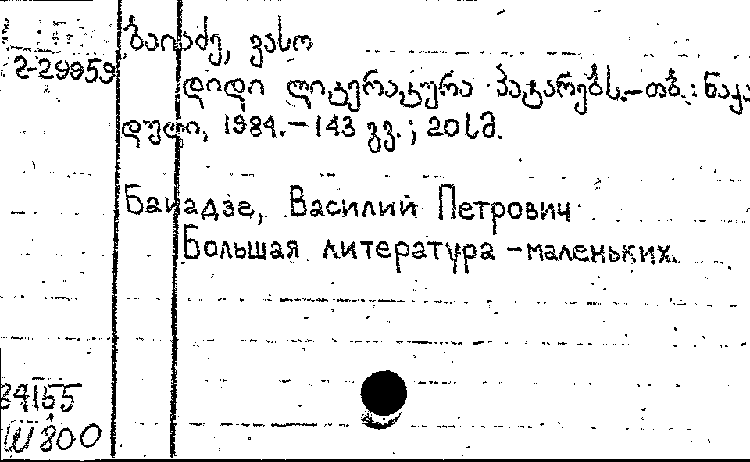 ბაიაძე, ვასო
2-29959
დიდი ლიტერატურა პატარებს.–თბ.: ნაკა
დული, 1984.–143 გვ.; 20 სმ.
Баиадзе, Василий Петрович
Большая литература – маленьких.
84155
N 800